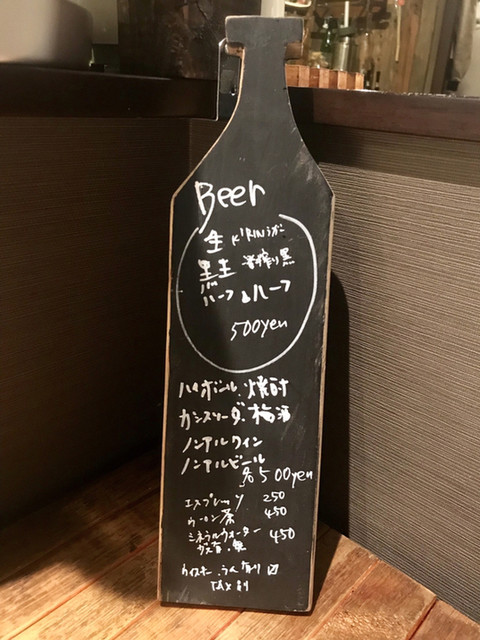 Beer
生 KIRINラガー
黒生 一番搾り黒
ハーフ&ハーフ
500yen
ハイボール.焼酎
カシスソーダ.梅酒
ノンアルワイン
ノンアルビール
各500yen
エスプレッソ 250
ウーロン茶 450
ミネラルウォーター 450
ガス有・無
ウイスキー.ラム有り
TAX別